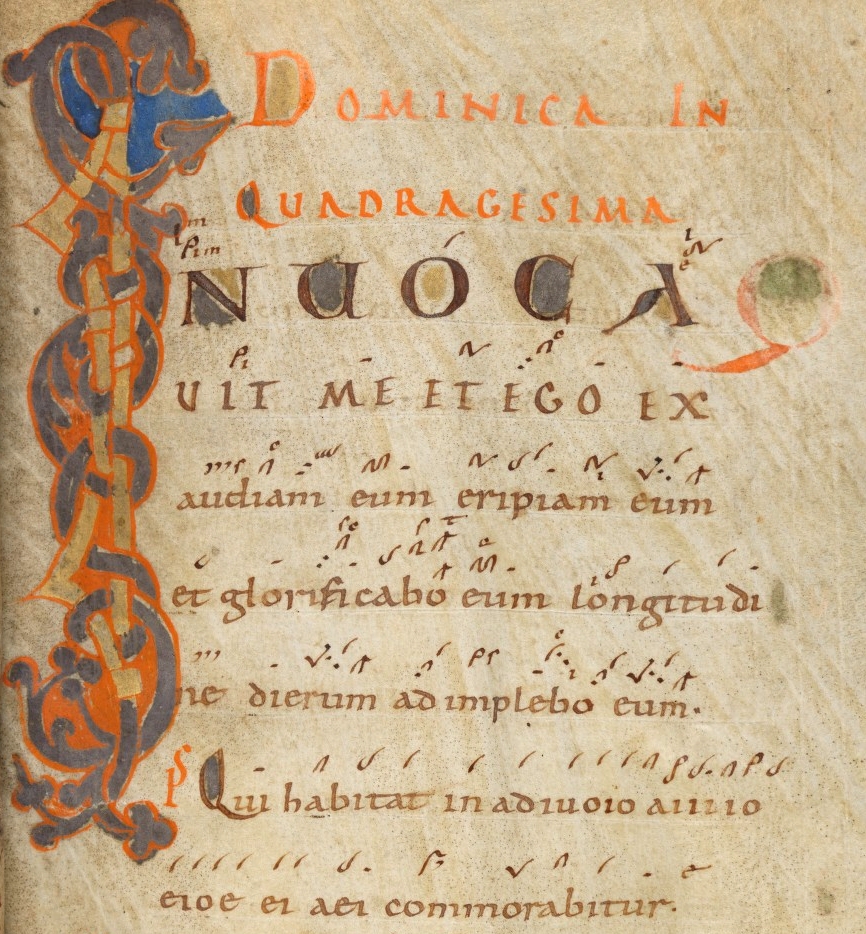 DOMINICA IN
QUADRAGESIMA
INUOCA
UIT ME ET EGO EX
audiam eum eripiam eum
et glorificabo eum longitudi
ne dierum adimplebo eum.
PS Qui habitat in adiuoio aiuiio
eioe ei aei commorabitur.